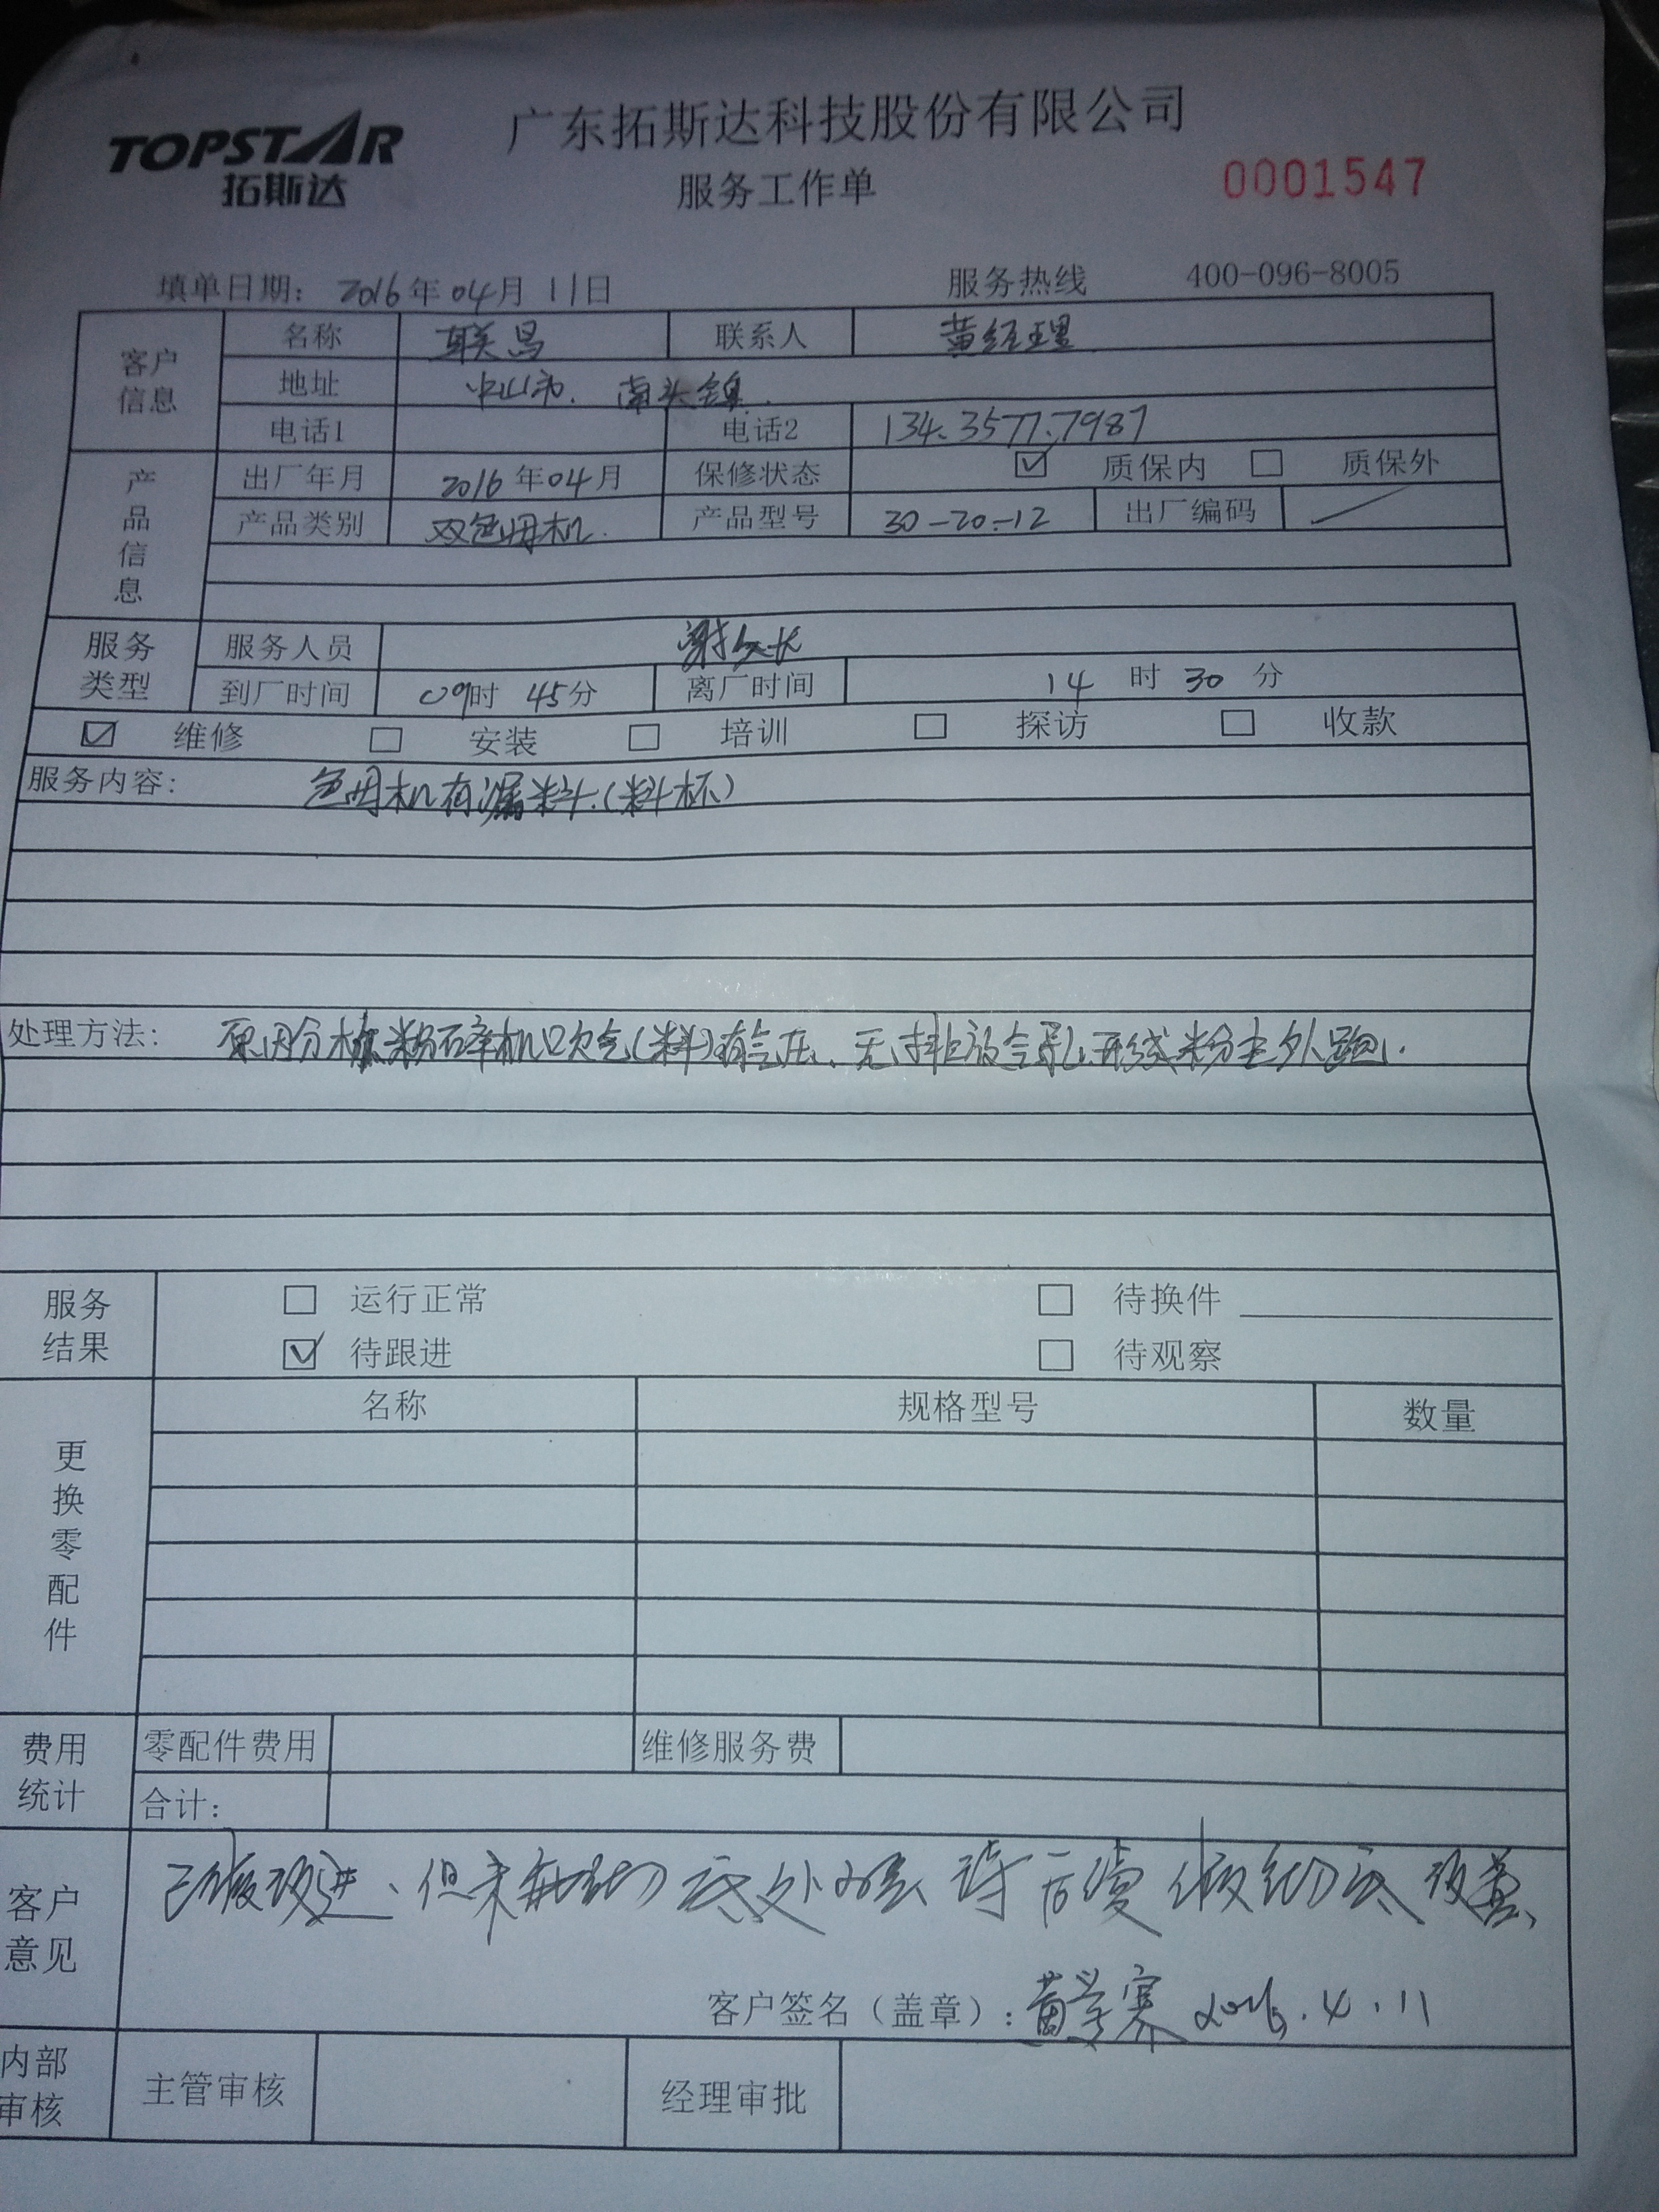 TOPSTAR
拓斯达
广东拓斯达科技股份有限公司
服务工作单
0001547
填单日期: 2016年04月11日 服务热线 400-096-8005
客户信息
名称 联昌 联系人 黄经理
地址 中山市. 南头镇.
电话1 电话2 134.3577.7987
产品信息
出厂年月 2016年04月 保修状态 ☑ 质保内 □ 质保外
产品类别 双色母机. 产品型号 30-20-12 出厂编码 /
服务类型
服务人员 谢
到厂时间 09时45分 离厂时间 14时30分
☑ 维修 □ 安装 □ 培训 □ 探访 □ 收款
服务内容: 色母机有漏料.(料杯)
处理方法: 原因分析粉碎机吹气(料)有气压、无排放气孔.形成粉尘外跑.
服务结果
□ 运行正常 □ 待换件
☑ 待跟进 □ 待观察
更换零配件
名称 规格型号 数量
费用统计
零配件费用 维修服务费
合计:
客户意见
已做改进、但未彻底处 后续做彻底改善、
客户签名(盖章): 黄 2016.4.11
内部审核
主管审核 经理审批